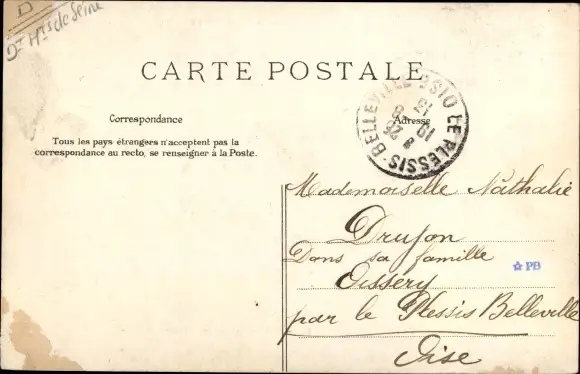 D
Dt Hts de Seine
CARTE POSTALE
Correspondance
Adresse
Tous les pays étrangers n'acceptent pas la
correspondance au recto, se renseigner à la Poste.
LE PLESSIS-BELLEVILLE OISE
Mademoiselle Nathalie
Drujon
Dans sa famille
Oissery
par le Plessis Belleville
Oise
PB